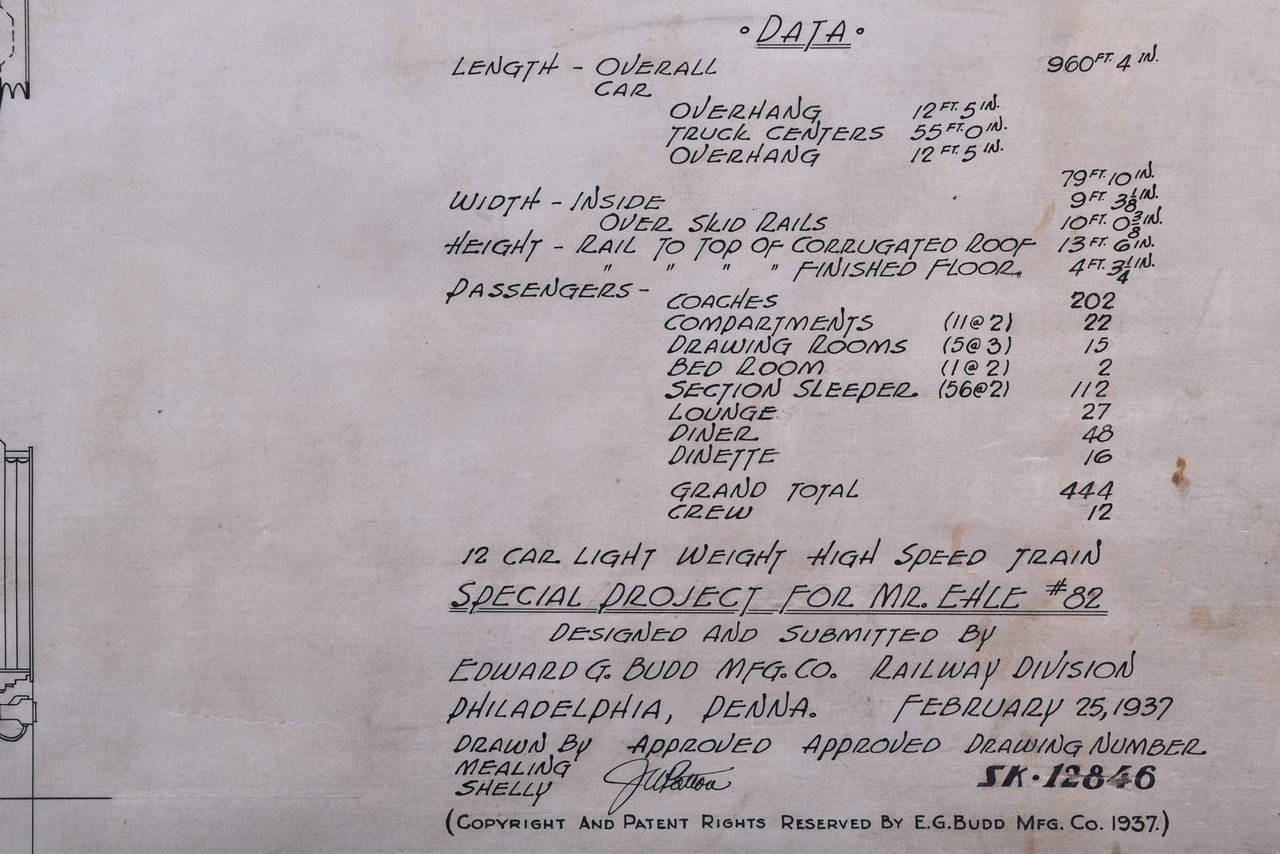 • DATA •
LENGTH - OVERALL 960 FT. 4 IN.
CAR
OVERHANG 12 FT. 5 IN.
TRUCK CENTERS 55 FT. 0 IN.
OVERHANG 12 FT. 5 IN.
79 FT. 10 IN.
WIDTH - INSIDE 9 FT. 3 1/8 IN.
OVER SKID RAILS 10 FT. 0 3/8 IN.
HEIGHT - RAIL TO TOP OF CORRUGATED ROOF 13 FT. 6 IN.
" " " " FINISHED FLOOR. 4 FT. 3 1/4 IN.
PASSENGERS -
COACHES 202
COMPARTMENTS (11@2) 22
DRAWING ROOMS (5@3) 15
BED ROOM (1@2) 2
SECTION SLEEPER (56@2) 112
LOUNGE 27
DINER 48
DINETTE 16
GRAND TOTAL 444
CREW 12
12 CAR LIGHT WEIGHT HIGH SPEED TRAIN
SPECIAL PROJECT FOR MR. EHLE #82
DESIGNED AND SUBMITTED BY
EDWARD G. BUDD MFG. CO. RAILWAY DIVISION
PHILADELPHIA, PENNA. FEBRUARY 25, 1937
DRAWN BY APPROVED APPROVED DRAWING NUMBER
MEALING JW Patton SK-12846
SHELLY
(COPYRIGHT AND PATENT RIGHTS RESERVED BY E.G. BUDD MFG. CO. 1937.)